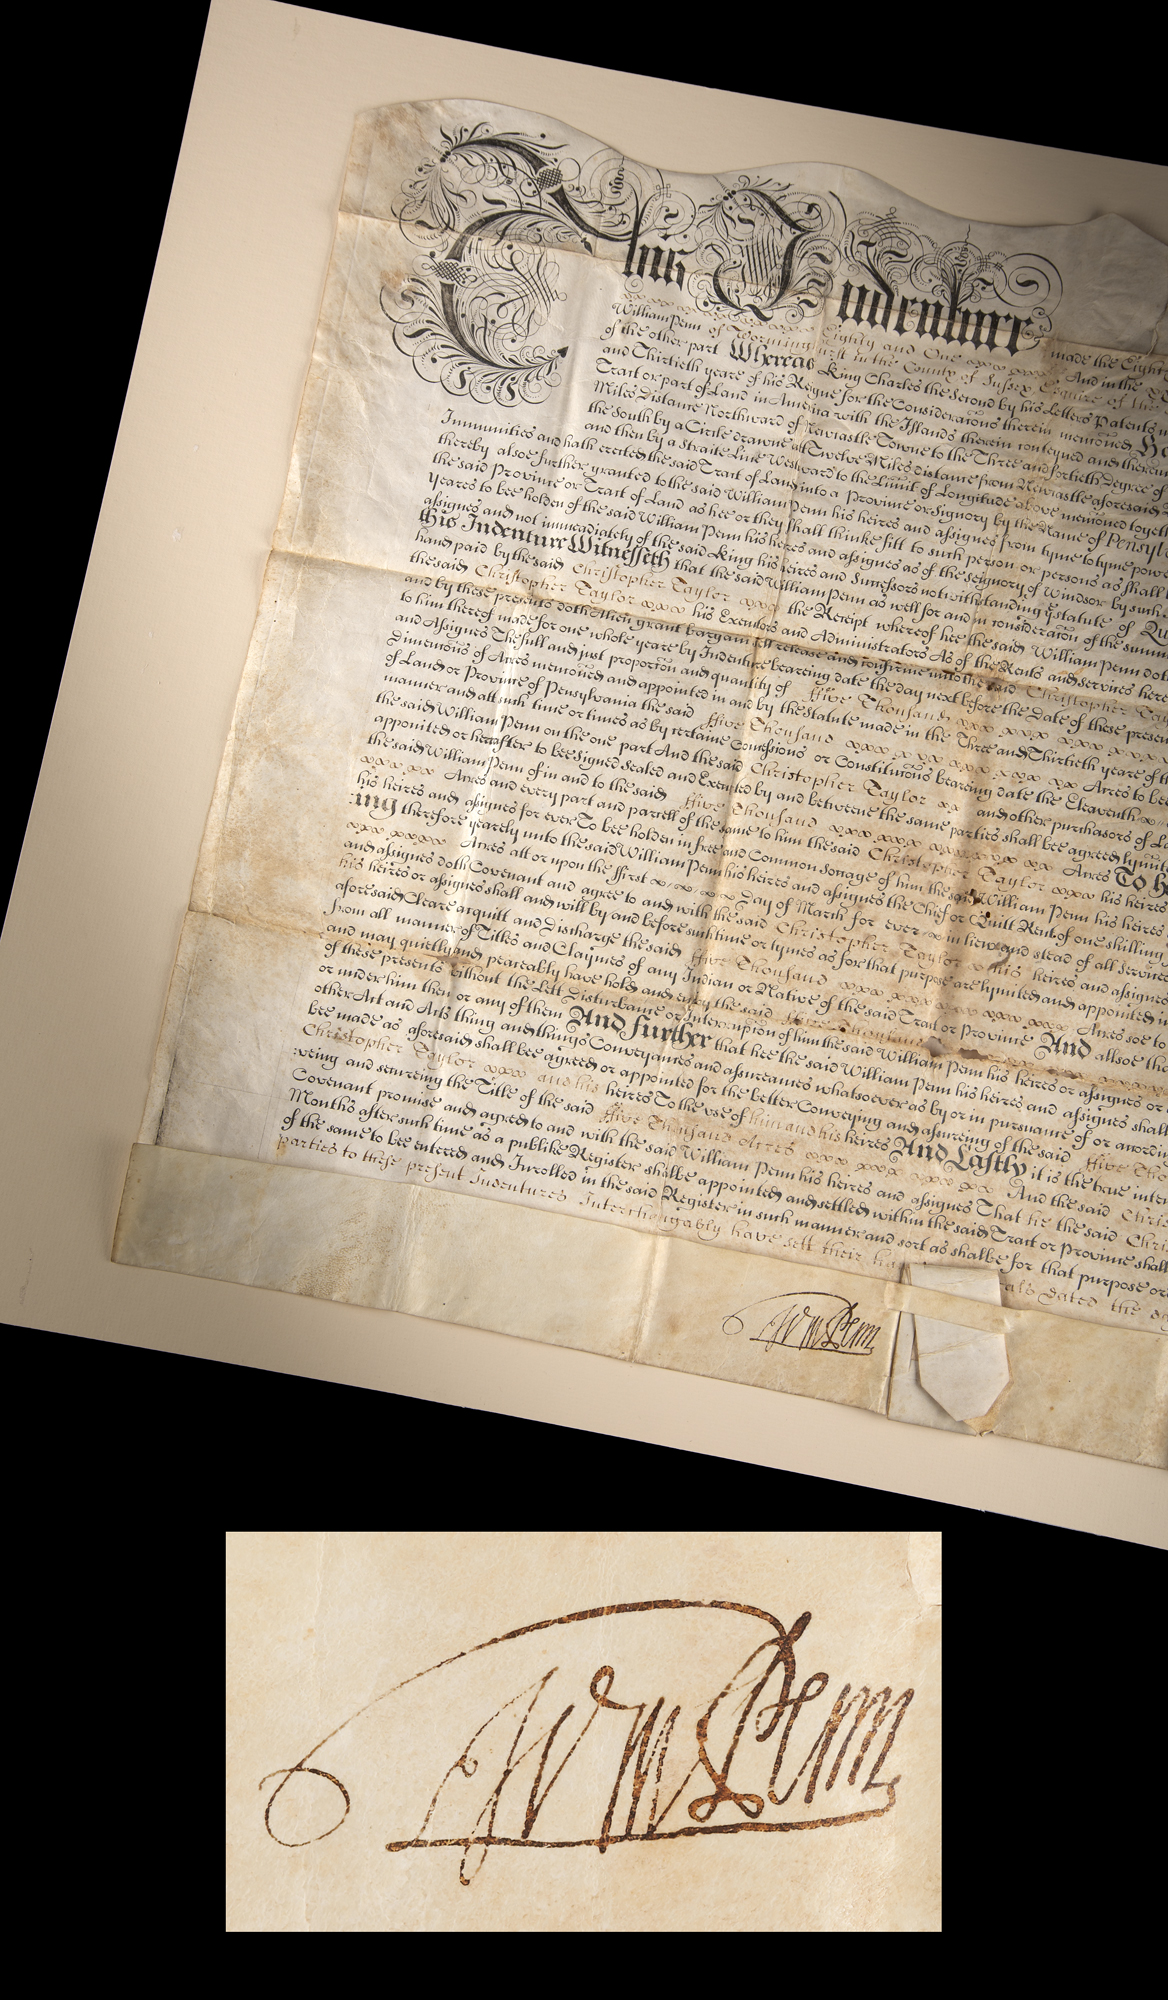 This Indenture made the Eight
Eighty and One And in the
William Penn of Worminghurst in the County of Sussex Esquire of the
of the other part Whereas King Charles the Second by his Letters Patents
and Thirtieth yeare of his Reigne for the Consideratons therein menconed
Tract or part of Land in America with the Islands therein conteyned and thereun
Miles Distante Northward of Newcastle Towne to the Three and fortieth Degree of
the South by a Circle drawne att Twelve Miles distant from Newcastle aforesaid
and then by a straite Line Westward to the Limitt of Longitude above menconed togeth
Immunities and hath erected the said Tract of Land into a Province or Signory by the Name of Pensyl
thereby alsoe further granted to the said William Penn his heires and assignes from tyme to tyme power
the said Province or Tract of Land as hee or they shall thinke fitt to such person or persons as shall
yeares to bee holden of the said William Penn his heires and assignes as of the seignory of Windsor by such
assignes and not immediately of the said King his heires and Successors notwithstanding statute of Qu
this Indenture Witnesseth that the said William Penn as well for and in consideracon of the summ
hand paid by the said Christopher Taylor the Receipt whereof hee the said William Penn doth
the said Christopher Taylor his Executors and Administrators As of the Rents and services here
and by these presents doth then grant bargain sell release and confirme unto the said Christopher Tay
to him thereof made for one whole yeare by Indenture beareing date the day next before the Date of these presen
and Assignes The full and just proportion and quantity of ffive Thousand
Dimencons of Acres menconed and appointed in and by the Statute made in the Three and Thirtieth yeare of
of Land or Province of Pensylvania the said ffive Thousand Acres to bee
manner and att such time or times as by certaine Concessions or Constitucons beareing date the Eleaventh
the said William Penn on the one part And the said Christopher Taylor and other purchasors of La
appointed or hereafter to bee Signed Sealed and Executed by and betweene the same parties shall bee agreed
the said William Penn of in and to the said ffive Thousand Acres To h
Acres and every part and parcell of the same to him the said Christopher Taylor his heires
his heires and assignes for ever To bee holden in free and Common Soccage of him the said William Penn his heires
ing therefore yearely unto the said William Penn his heires and assignes the Chief or Quitt Rent of one shilling
Acres att or upon the ffirst Day of March for ever in lieu and stead of all services
and assignes doth Covenant and agree to and with the said Christopher Taylor his heires and assignes
his heires or assignes shall and will by and before such time or tymes as for that purpose are lymitted and appointed in
aforesaid Cleare acquitt and Discharge the said ffive Thousand Acres soe to
from all manner of Titles and Claymes of any Indian or Native of the said Tract or Province And allsoe tha
and may quietly and peaceably have hold and enjoy the said ffive Thousand
of these presents without the Lett Disturbance or Interrupcon of him the said William Penn his heires or assignes or
or under him them or any of them And further that hee the said William Penn his heires and assignes shall
other Act and Acts thing and things Conveyances and assureances whatsoever as by or in pursuance of or accordi
bee made as aforesaid shall bee agreed or appointed for the better Conveying and assureing of the said ffive Tho
Christopher Taylor and his heires To the use of him and his heires And Lastly it is the true inten
veing and secureing the Title of the said ffive Thousand Acres And the said Chris
Covenant promise and agree to and with the said William Penn his heires and assignes That he the said Chri
Months after such time as a publike Register shalbe appointed and settled within the said Tract or Province shall
of the same to bee entered and Inrolled in the said Register in such manner and sort as shalbe for that purpose or
parties to these present Indentures Interchangably have sett their dated the
Wm Penn
Wm Penn